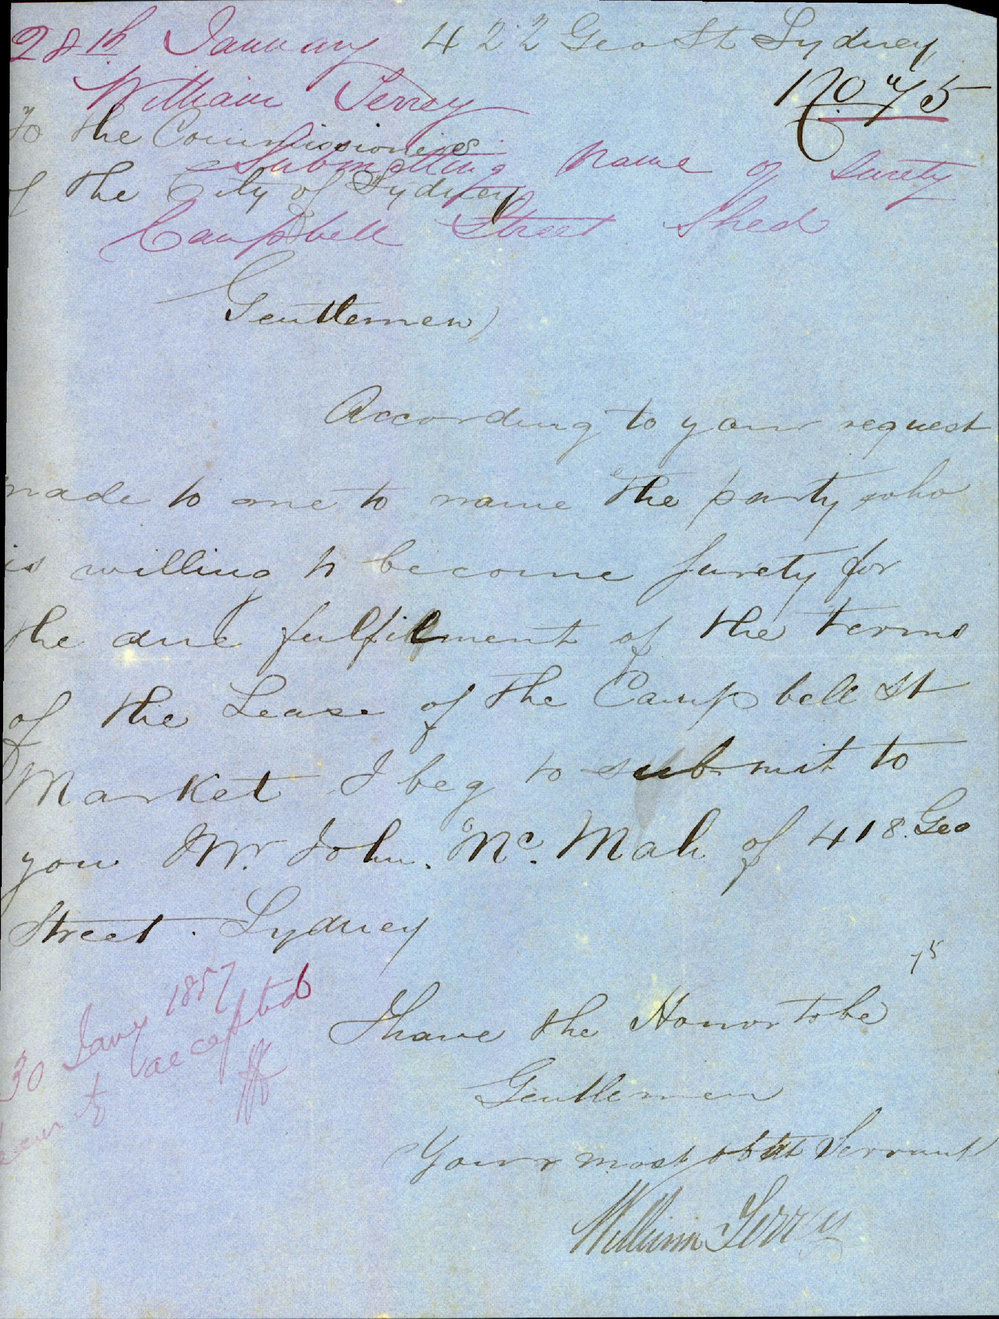 28th January 422 Geo St Sydney
William Terrey No 75
To the Commissioners
Submitting Name of Surety
of the City of Sydney
Campbell Street Shed
Gentlemen
According to your request
made to me to name the party who
is willing to become surety for
the due fulfilment of the terms
of the Lease of the Campbell St
Market I beg to submit to
you Mr. John. Mc. Mah of 418 Geo
Street. Sydney
75
30 Jany 1857
accepted
I have the Honor to be
Gentlemen
Your most obdt Servant
William Terrey